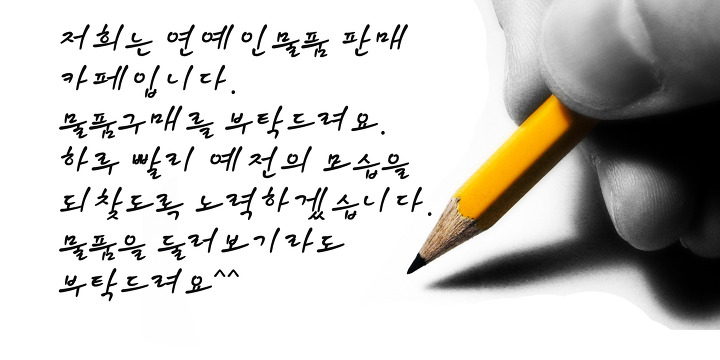 저희는 연예인물품 판매
카페입니다.
물품구매를 부탁드려요.
하루 빨리 예전의 모습을
되찾도록 노력하겠습니다.
물품을 둘러보기라도
부탁드려요^^